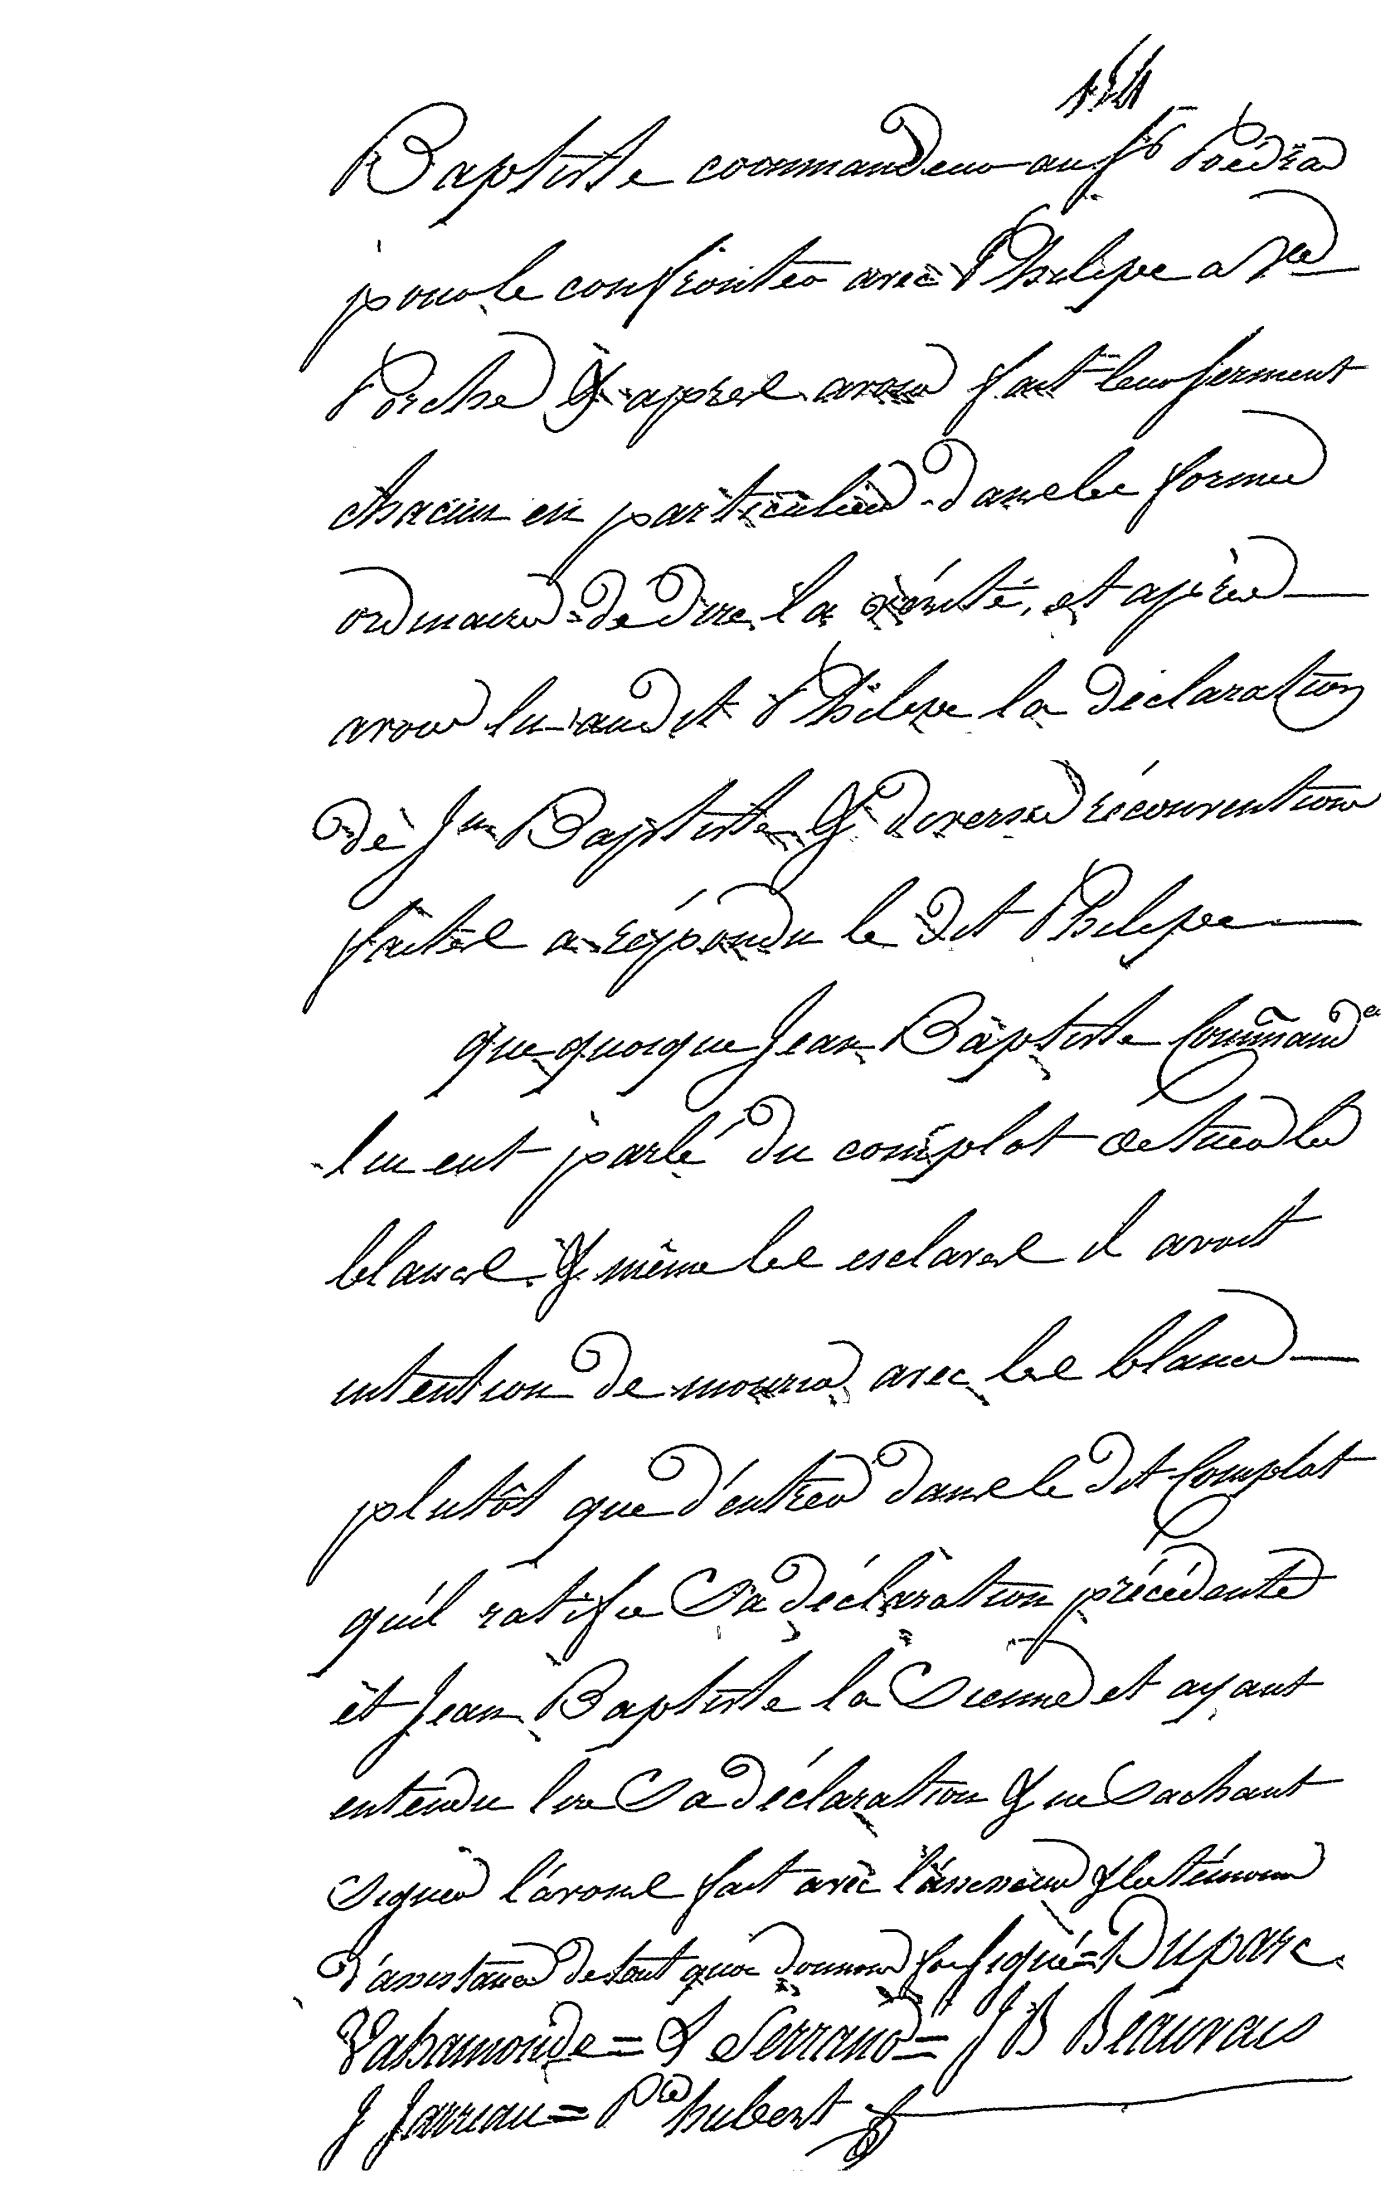 Baptiste commandeur au Sr Poedra
pour le confronter avec Philipe a Ve
Porche & apres avoir fait leur serment
chacun en particulier dans les formes
ordinaires de dire la vérité, et après
avoir lu au dit Philipe la déclaration
de Jn Baptiste & diverses réconventions
faites a répondu le dit Philipe
que quoique Jean Baptiste Command
lui eut parlé du complot de tuer les
blancs & même les esclaves il avoit
intention de mourir avec les blancs
plutôt que d'entrer dans le dit Complot
qu'il ratifie Sa déclaration précédente
et Jean Baptiste la Sienne et ayant
entendu lire Sa déclaration & ne Sachant
signer l'avons fait avec l'assesseur & les témoins
d'assistance de tout quoi donnons foi signé = Duparc
Vahamonde = L Serrano = J B Beauvais
J Jarreau = Pre hubert